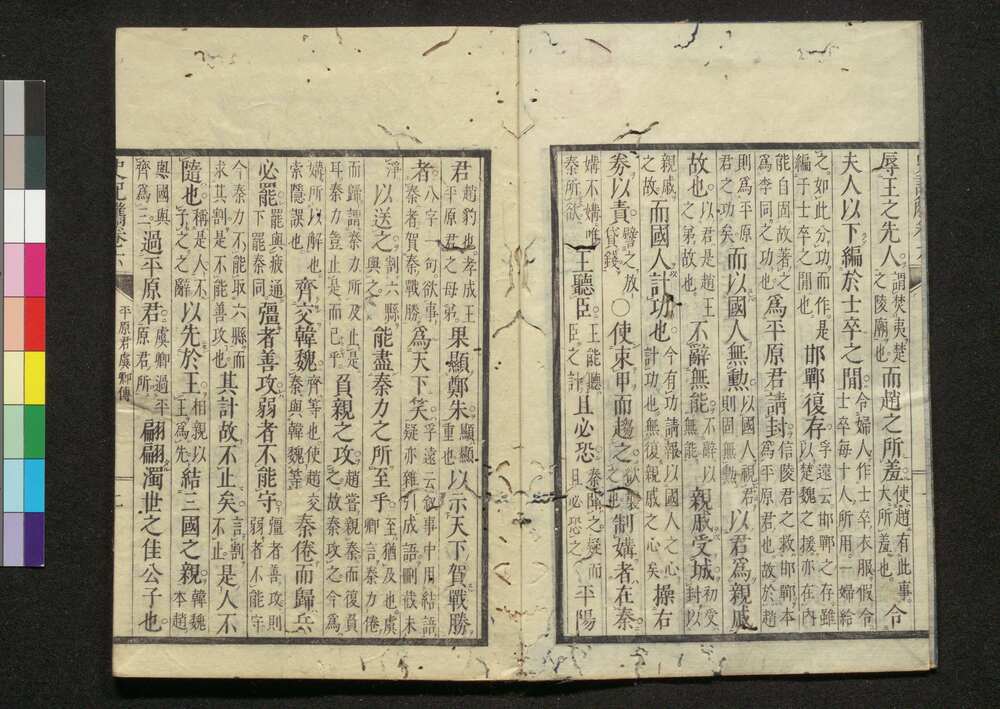 辱王之先人謂焚夷楚之陵廟也而趙之所羞使趙有此事大所羞也令
夫人以下編於士卒之閒令婦人作士卒衣服假令士卒每十人所用一婦給
之如此分功而作是編于士卒之閒也邯鄲復存孚遠云邯鄲之存雖以楚魏之援亦在內
能自固故著之爲李同之功也爲平原君請封信陵君之救邯鄲本爲平原君也故於趙
則爲平原君之功矣而以國人無勲以國人視君則固無勲以君爲親戚
故也以君是趙王之弟故也不辭無能不辭以無能親戚受城初受封以
親戚之故而國人計功也今有功請報以國人之心計功也無復親戚之心矣操右
券以責譬之放貸錢○使束甲而趨之制媾者在秦
媾不媾唯秦所欲王聽臣王能聽臣之計且必恐秦且必恐之平陽
君趙豹也孝成王平原君之母弟果顯鄭朱顯顯重也以示天下賀戰勝
者八字一句欲事秦者賀秦戰勝爲天下笑孚遠云叙事中用結語疑亦雜引成語刪截未
淨以送之割六縣與之能盡秦力之所至乎至猶及也虞卿言秦力倦
而歸謂秦力所及止是耳秦力豈止是而已乎負親之攻趙嘗親秦而復負之故秦攻之今爲
媾所以解也索隱誤也齊交韓魏齊等也使趙交秦與韓魏等秦倦而歸兵
必罷罷與疲通下罷秦同彊者善攻弱者不能守彊者善攻則弱者不能守
今秦力不能取六縣而求其割是不能善攻也其計故不止矣言割不止是人不
隨也稱是人不子之之辭以先於王相親以王爲先結三國之親韓魏本趙
與國與齊爲三過平原君虞卿過平原君所翩翩濁世之佳公子也
平原君虞卿傳